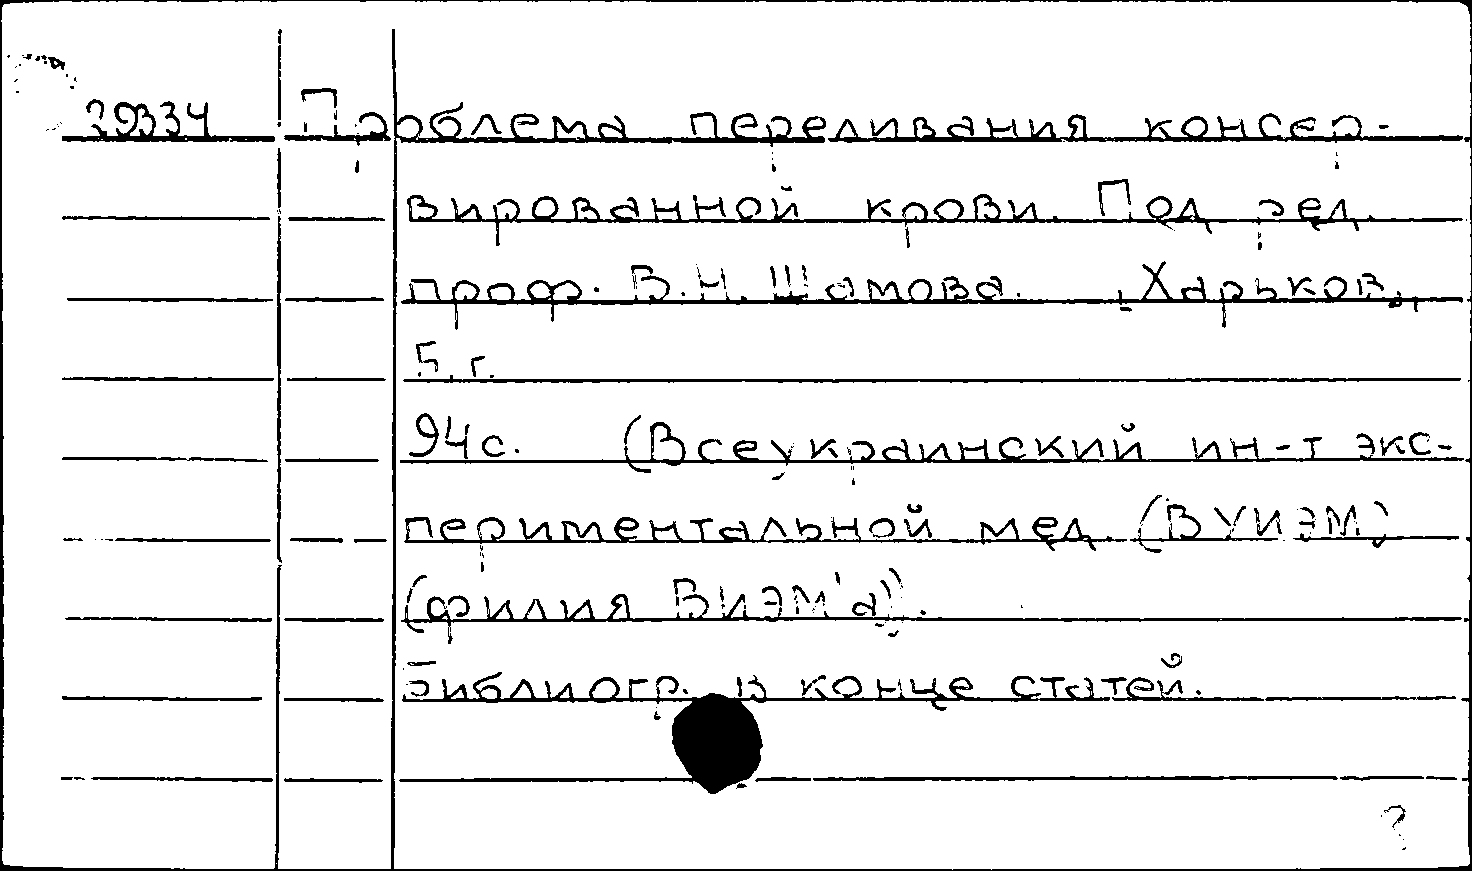 29334 Проблема переливания консер-
вированной крови. Под ред.
проф. В.Н. Шамова. [Харьков],
Б. г.
94 с. (Всеукраинский ин-т экс-
периментальной мед. (ВУИЭМ)
(филия ВИЭМ'а)).
Библиогр. в конце статей.